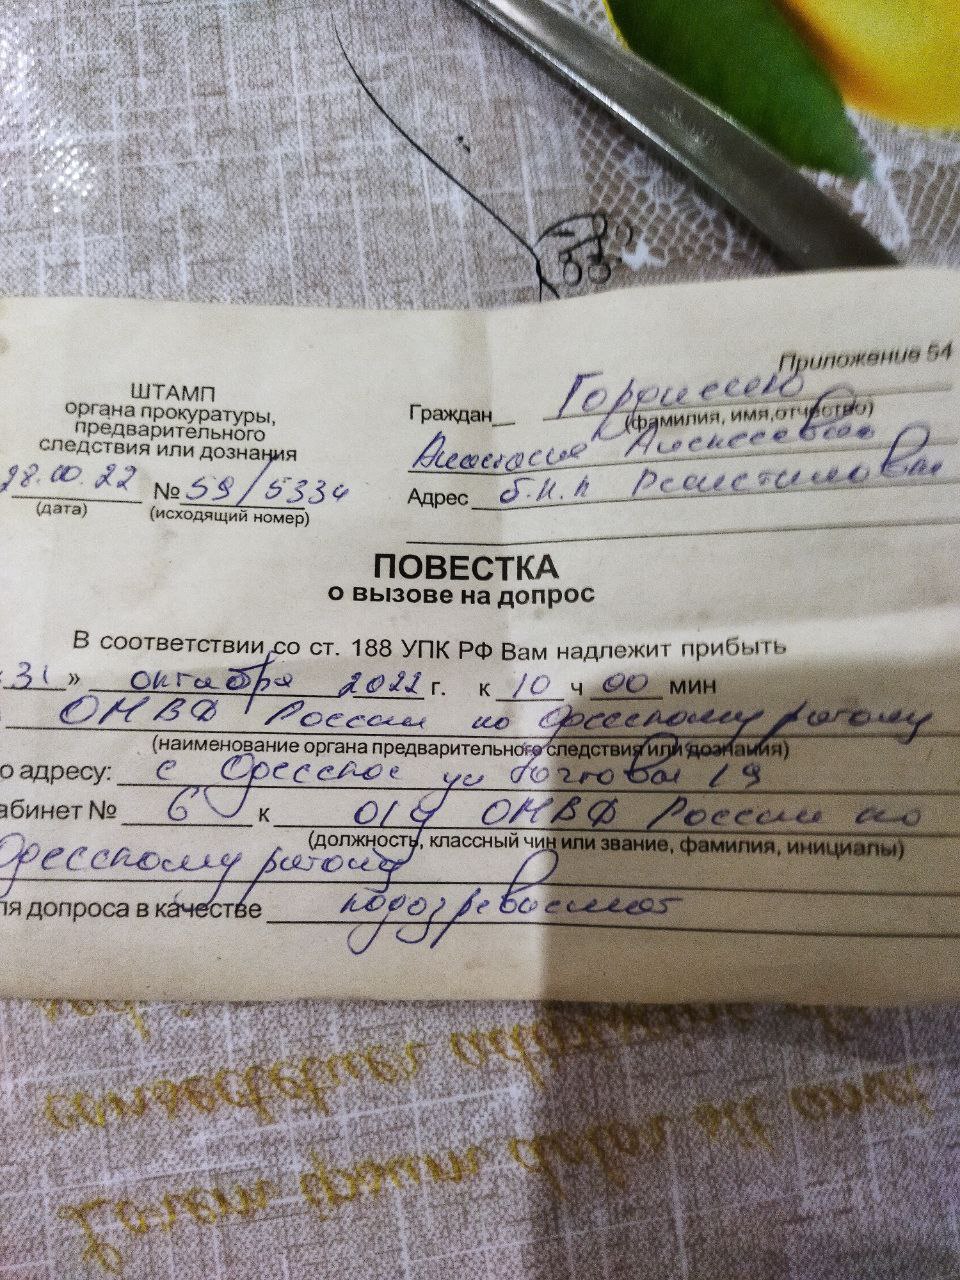 Приложение 54
ШТАМП
органа прокуратуры,
предварительного
следствия или дознания
28.10.22 № 59/5334
(дата) (исходящий номер)
Граждан
(фамилия, имя, отчество)
Анастасия Алексеевна
Адрес
ПОВЕСТКА
о вызове на допрос
В соответствии со ст. 188 УПК РФ Вам надлежит прибыть
31 » октября 2022 г. к 10 ч 00 мин
ОМВД России по Одесскому району
(наименование органа предварительного следствия или дознания)
о адресу: с Одесское ул Почтовая 19
абинет № 6 к о/у ОМВД России по
(должность, классный чин или звание, фамилия, инициалы)
Одесскому району
ля допроса в качестве
consectetuer
Lorem ipsum dolor sit amet